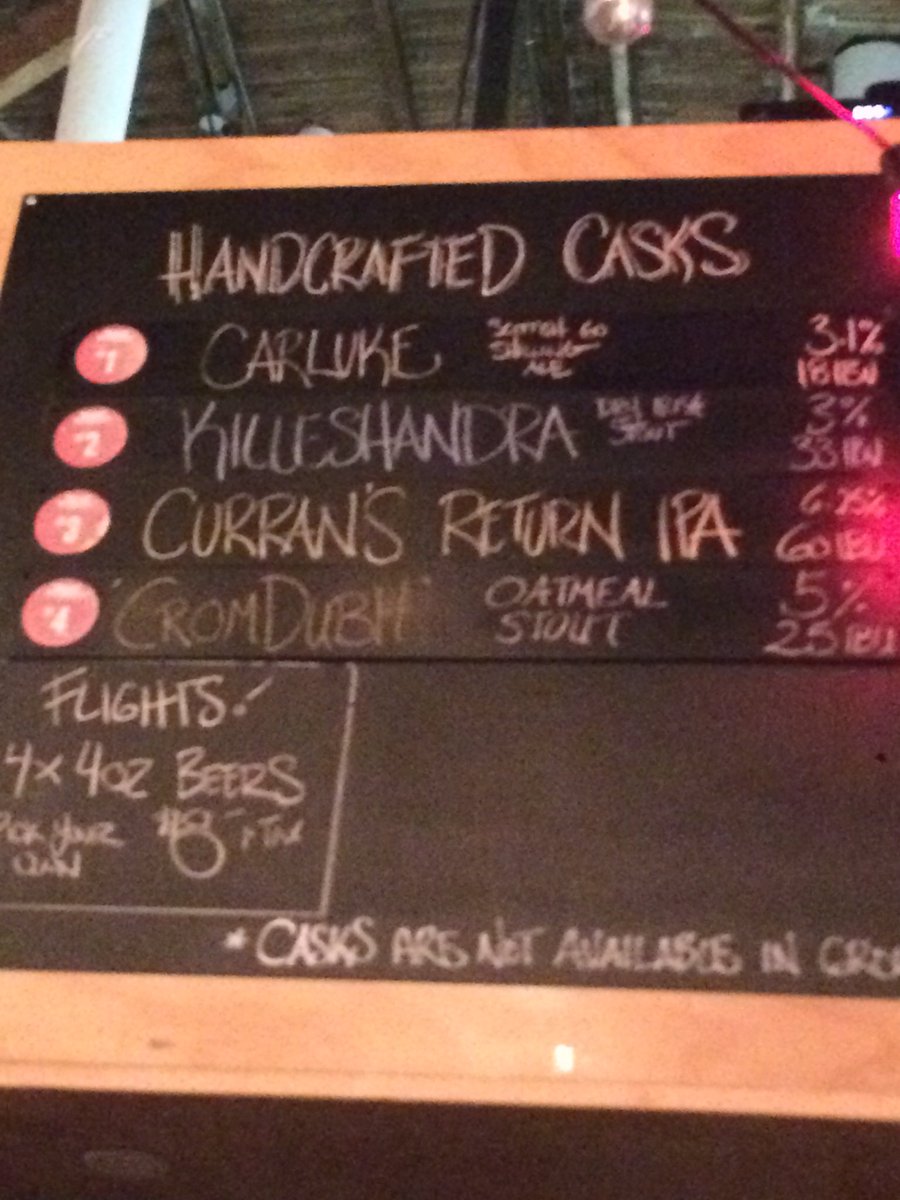 HANDCRAFTED CASKS
1 CARLUKE 3.1%
18 IBU
2 KILLESHANDRA DRY IRISH STOUT 3%
33 IBU
3 CURRAN'S RETURN IPA 6.25%
60 IBU
4 "CROMDUBH" OATMEAL STOUT .5%
25 IBU
FLIGHTS!
4x4OZ BEERS
PICK YOUR OWN $8 + TAX
* CASKS ARE NOT AVAILABLE IN